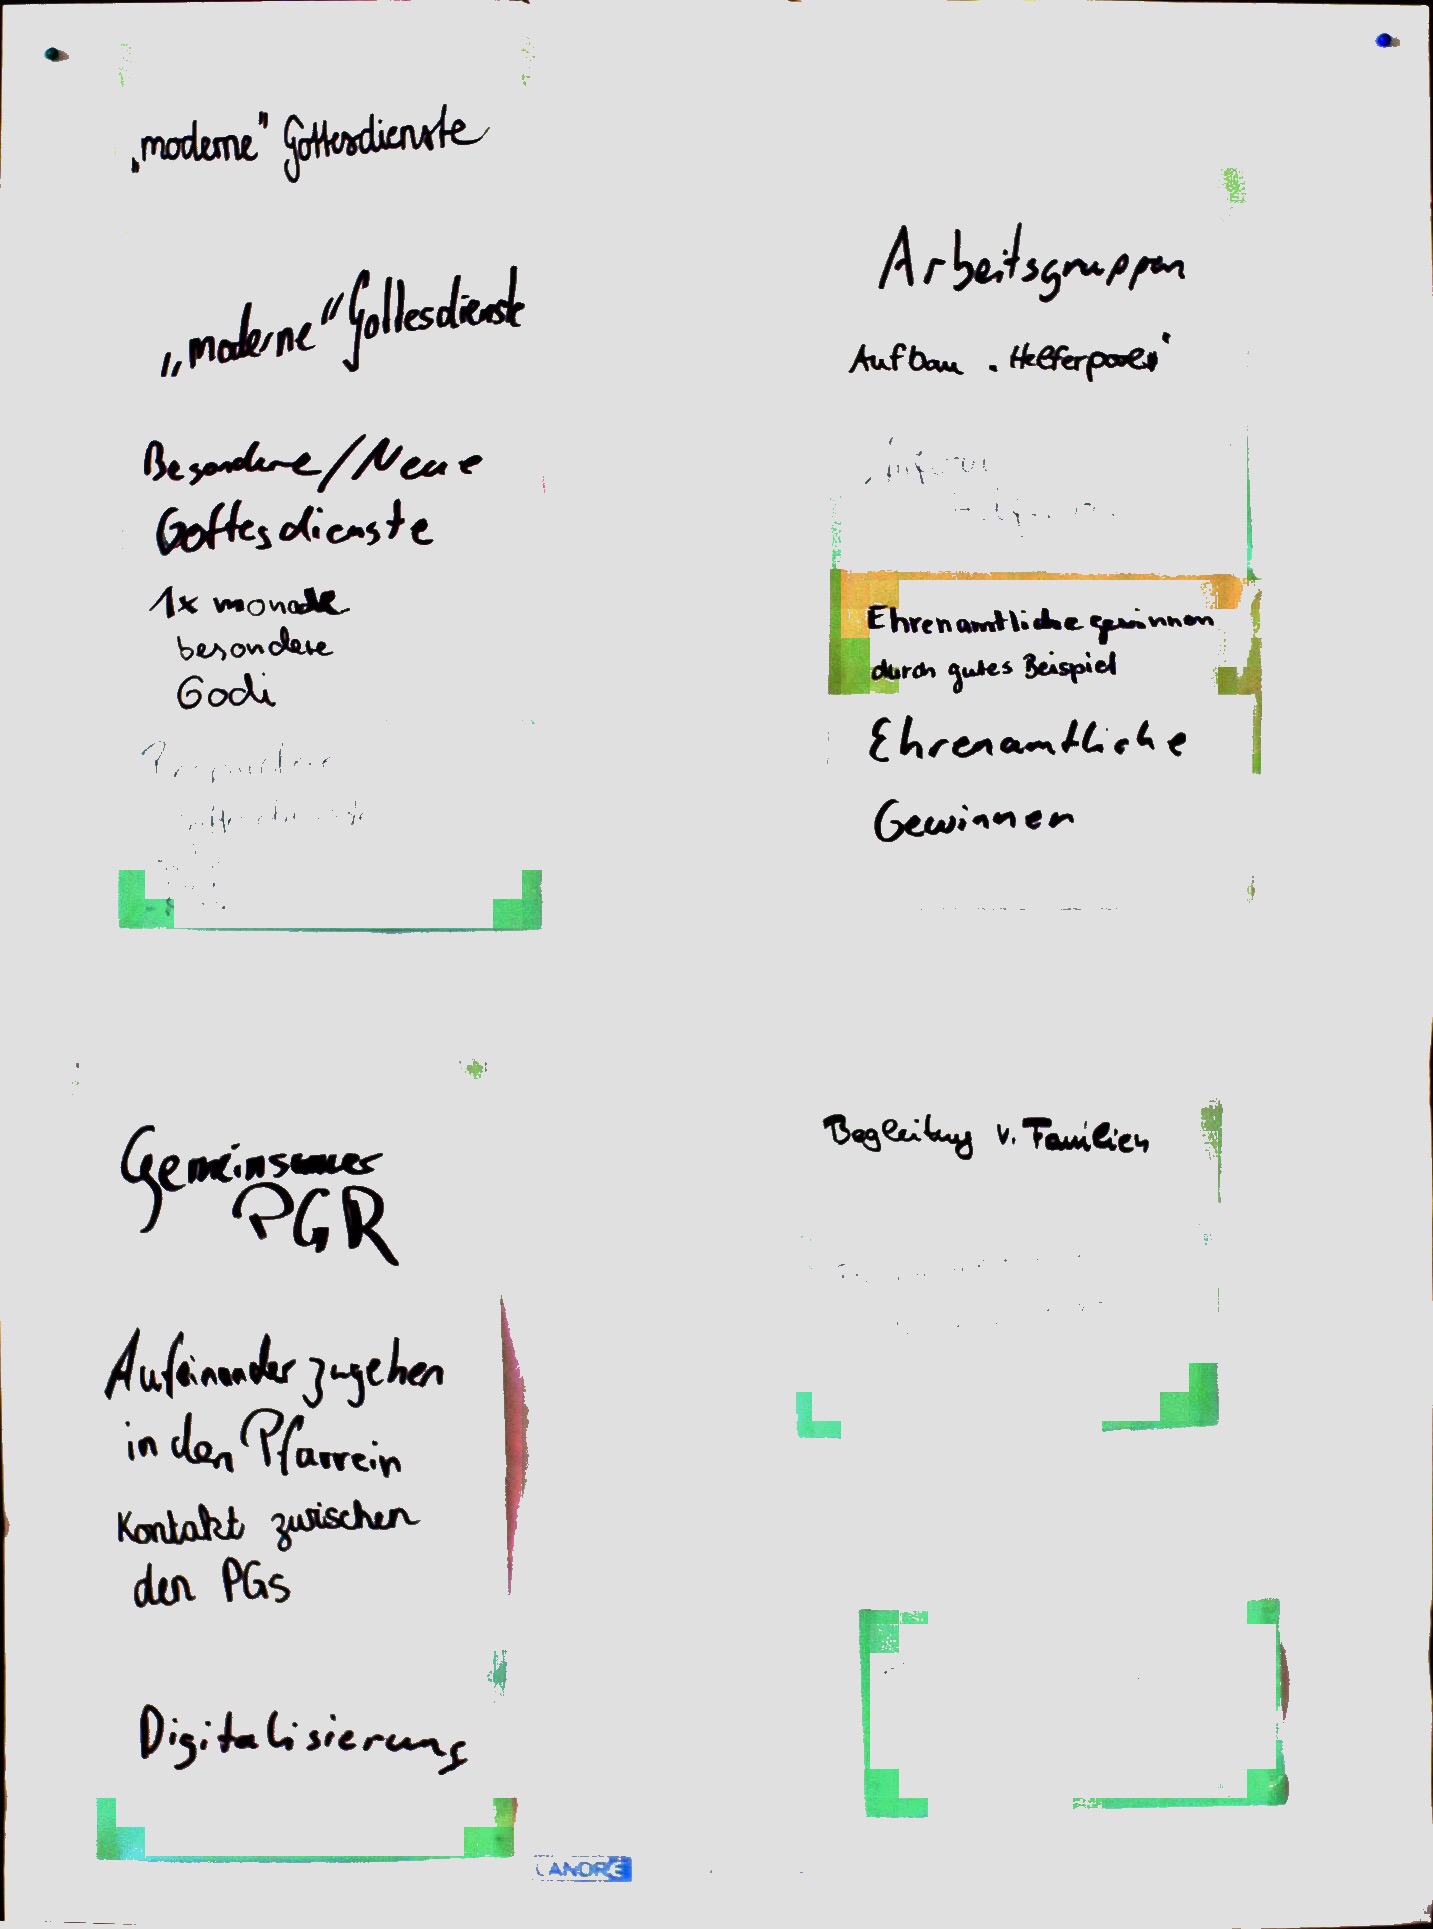 „moderne" Gottesdienste
„moderne" Gottesdienste
Besondere/Neue
Gottesdienste
1x monatl
besondere
Godi
Arbeitsgruppen
Aufbau "Helferpool"
Ehrenamtliche gewinnen
durch gutes Beispiel
Ehrenamtliche
Gewinnen
Gemeinsamer
PGR
Aufeinander zugehen
in den Pfarrein
Kontakt zwischen
den PGs
Digitalisierung
Begleitung v. Familien